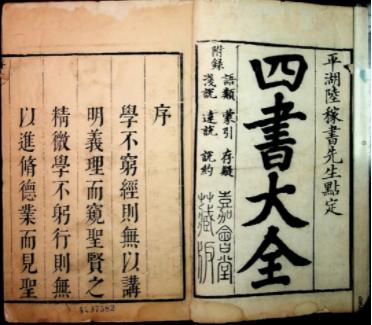 平湖陸稼書先生點定
四書大全
附錄
語類 蒙引 存疑
淺說 達說 說約
嘉會堂
藏版
序
學不窮經則無以講
明義理而窺聖賢之
精微學不躬行則無
以進脩德業而見聖